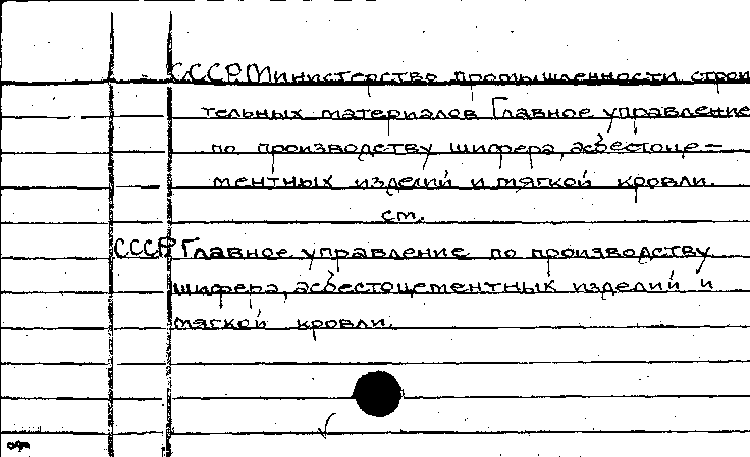 СССР. Министерство промышленности строи
тельных материалов Главное управление
по производству шифера, асбестоце=
ментных изделий и мягкой кровли.
см.
СССР Главное управление по производству
шифера, асбестоцементных изделий и
мягкой кровли.